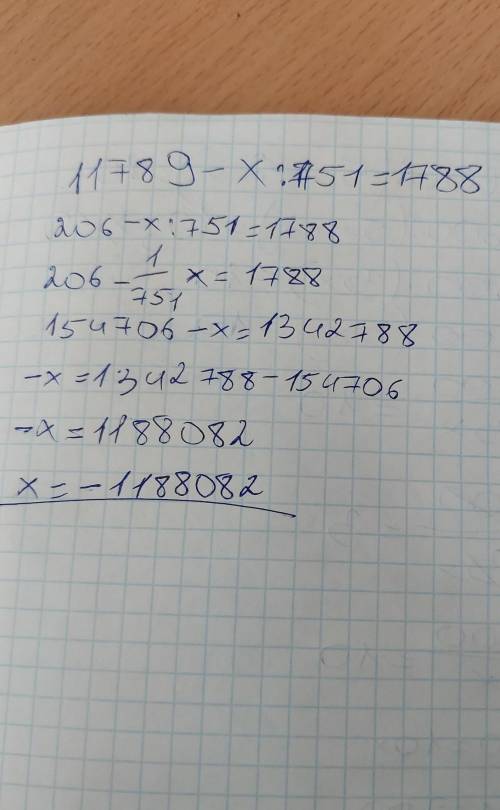 11789 - x : 751 = 1788
206 - x : 751 = 1788
206 - 1/751 x = 1788
154706 - x = 1342788
-x = 1342788 - 154706
-x = 1188082
x = -1188082